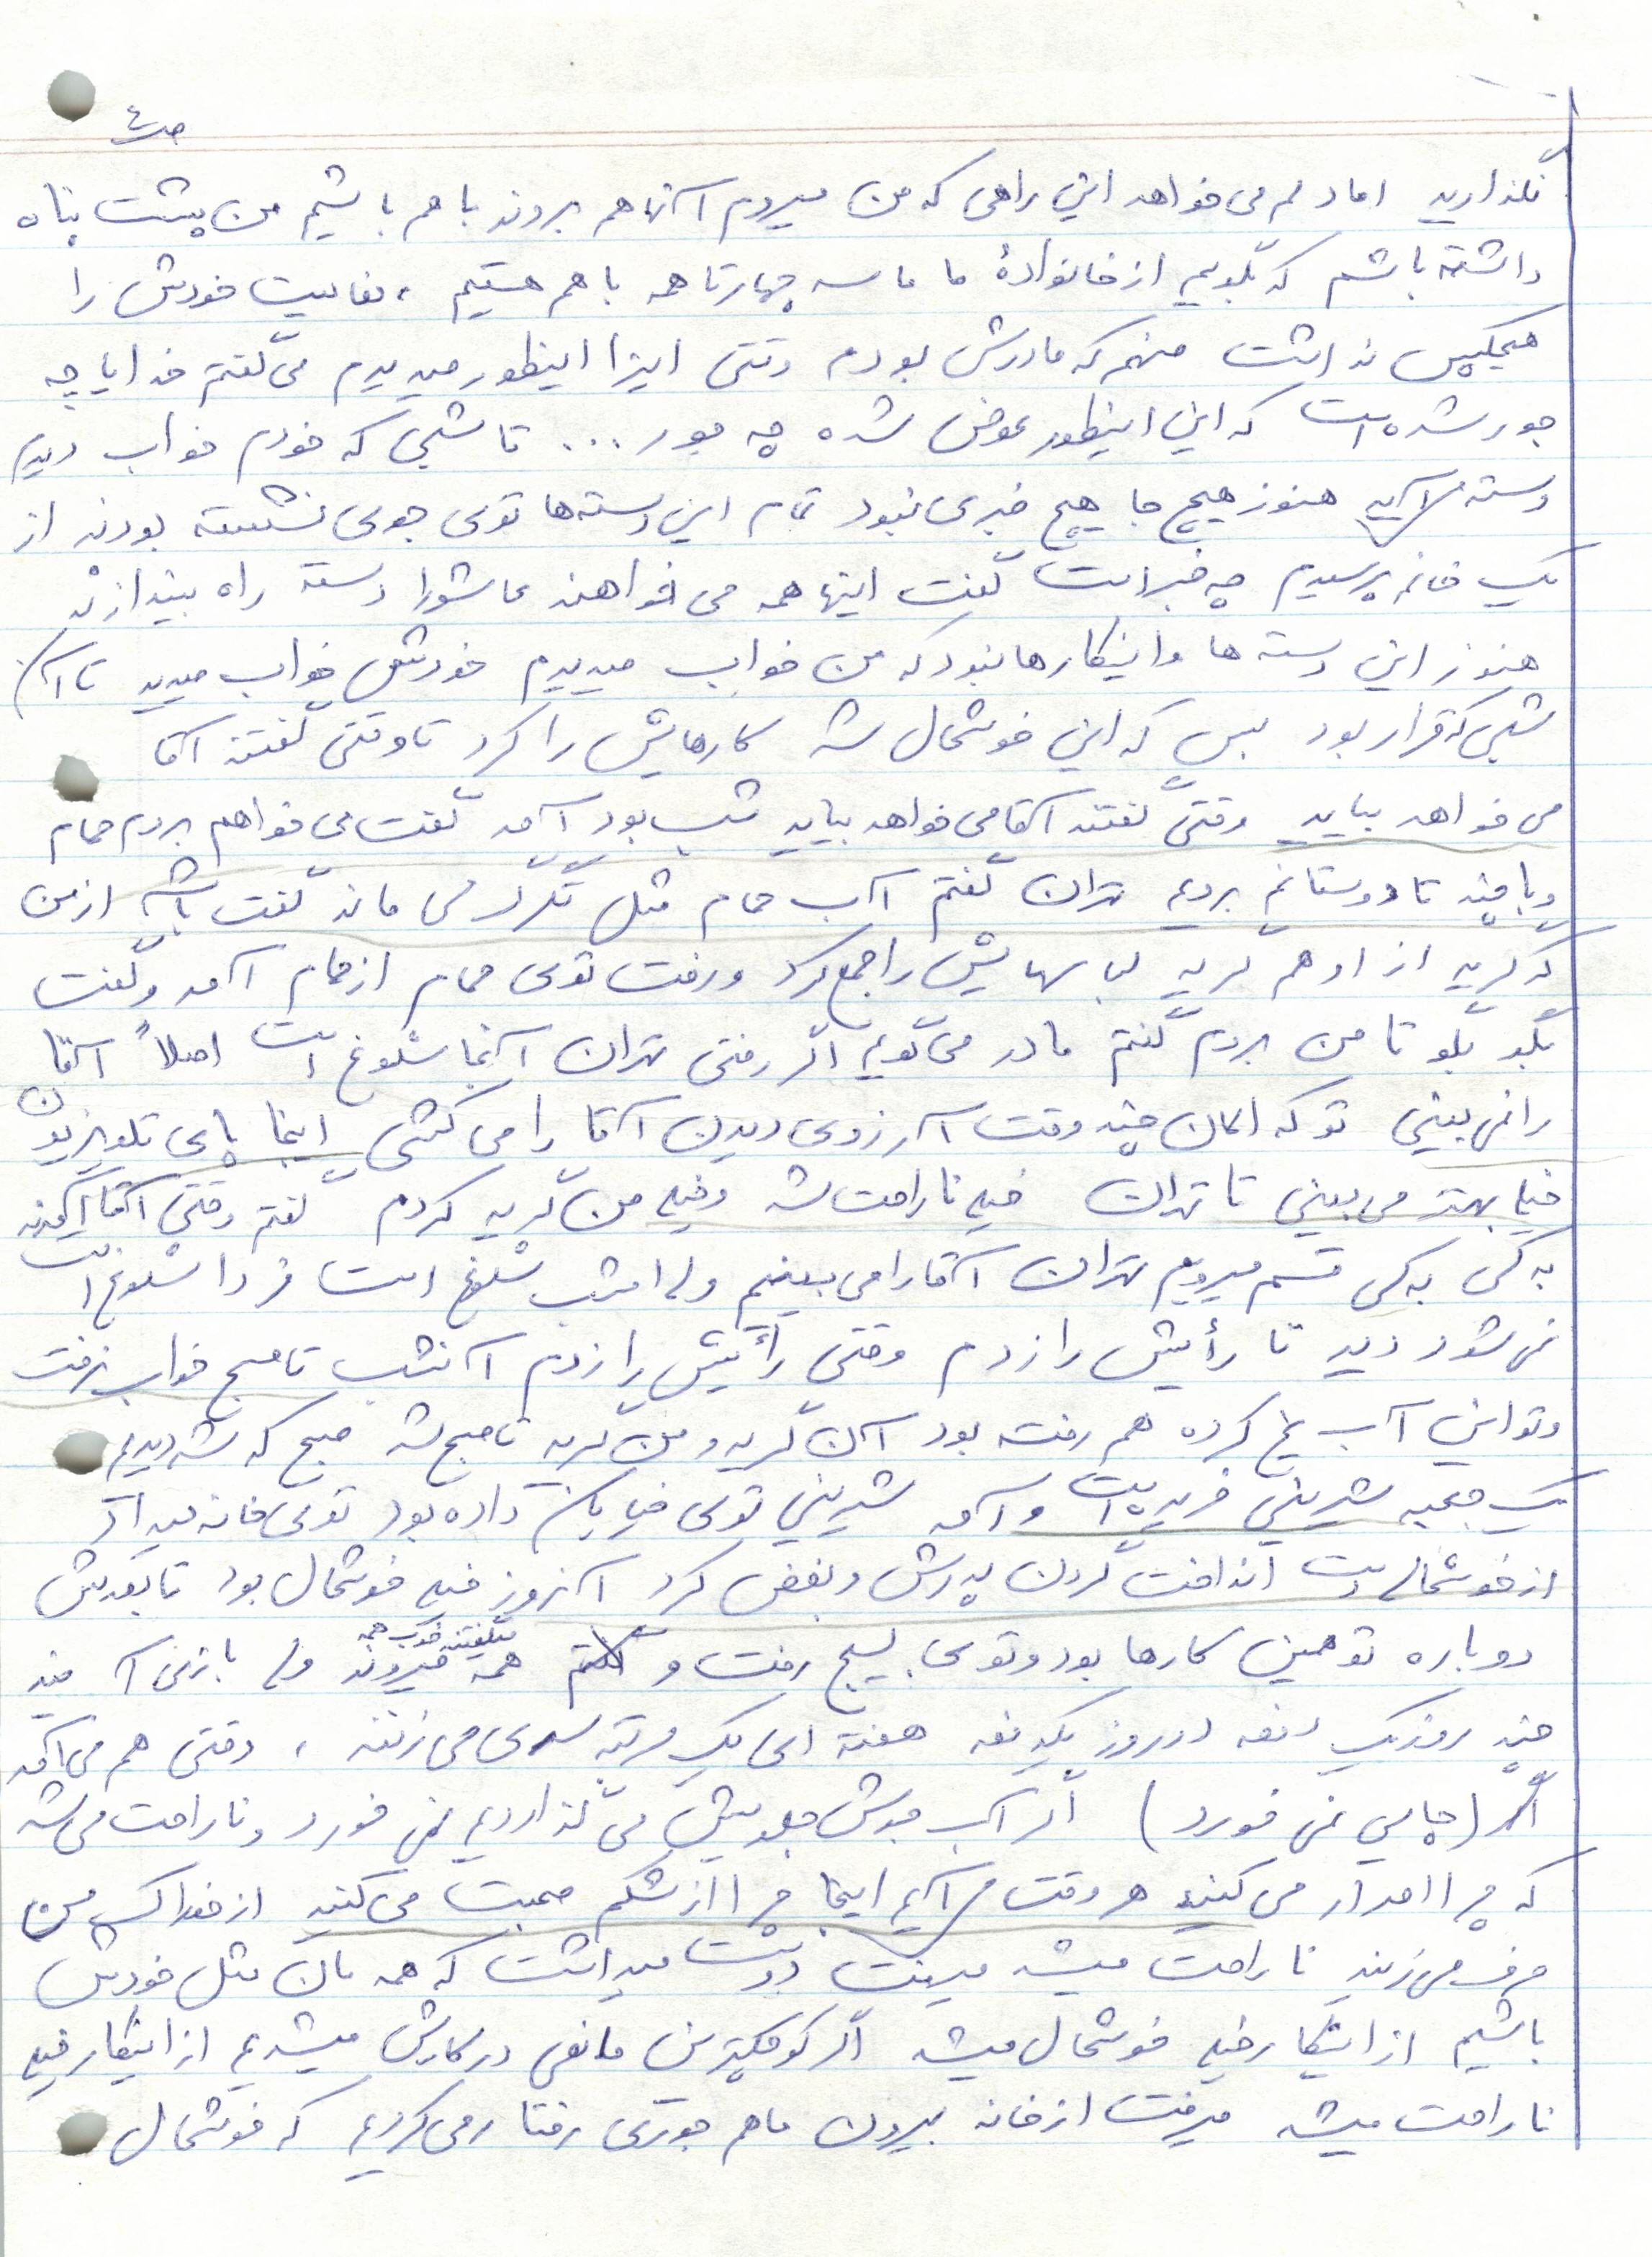 ص ٤
نگذارید اما دلم می خواهد این راهی که من میروم آنها هم بروند با هم باشیم من پشت پناه
داشته باشم که بگویم از خانوادهٔ ما ما سه چهارتا همه با هم هستیم ، فعالیت خودش را
هیچکس نداشت منهم که مادرش بودم وقتی اینرا اینطور میدیدم می گفتم خدایا چه
جور شده است که این اینطور عوض شده چه جور ... تا شبی که خودم خواب دیدم
دسته میآید هنوز هیچ جا هیچ خبری نبود تمام این دسته ها توی جوی نشسته بودند از
یک خانم پرسیدم چه خبر است گفت اینها همه می خواهند عاشورا دسته راه بیندازند
هنوز این دسته ها و اینکارها نبود که من خواب میدیدم خودش خواب میدید تا آن
شبی که قرار بود بس که این خوشحال شد کارهایش را کرد تا وقتی گفتند آقا
می خواهد بیاید وقتی گفتند آقا می خواهد بیاید شب بود آمد گفت می خواهم بروم حمام
و با چند تا دوستانم برویم تهران گفتم آب حمام مثل تگرگ می ماند گفت باشه از من
که گریه از او هم گریه لباسهایش را جمع کرد و رفت توی حمام از حمام آمد و گفت
بگو بگو تا من بروم گفتم مادر می گویم اگر رفتی تهران آنجا شلوغ است اصلاً آقا
را نمی بینی تو که الان چند وقت آرزوی دیدن آقا را می کشی اینجا پای تلویزیون
خیلی بهتر می بینی تا تهران خیلی ناراحت شد و خیلی من گریه کردم گفتم وقتی آقا آمدند
به کی به کی قسم میرویم تهران آقا را می بینیم ولی امشب شلوغ است فردا شلوغ است
نمی شود دید تا رأیش را زدم وقتی رأیش را زدم آنشب تا صبح خواب نرفت
و تو این آب یخ کرده هم رفته بود آن گریه و من گریه تا صبح شد صبح که شد دیدیم
یک جعبه شیرینی خریده است و آمد شیرینی توی خیابان داده بود توی خانه میداد
از خوشحالی دست انداخت گردن پدرش و بغض کرد آنروز خیلی خوشحال بود تا بعدش
دوباره تو همین کارها بود و توی بسیج رفت و همه میگفتند خوب همه میروند ولی بازنمی آ چند
چند روز یک دفعه دو روز یکدفعه هفته ای یک مرتبه سری می زنند ، وقتی هم می آمد
اگر (چایی نمی خورد) اگر آب جوش جلویش می گذاردیم نمی خورد و ناراحت می شد
که چرا اصرار می کنید هر وقت میآیم اینجا چرا از شکم صحبت می کنید از خوراک من
حرف می زنید ناراحت میشد میرفت دوست میداشت که همه مان مثل خودش
باشیم از اینکار خیلی خوشحال میشد اگر کوچکترین مانعی در کارش میشدیم از اینکار خیلی
ناراحت میشد میرفت از خانه بیرون ما هم جوری رفتار می کردیم که خوشحال